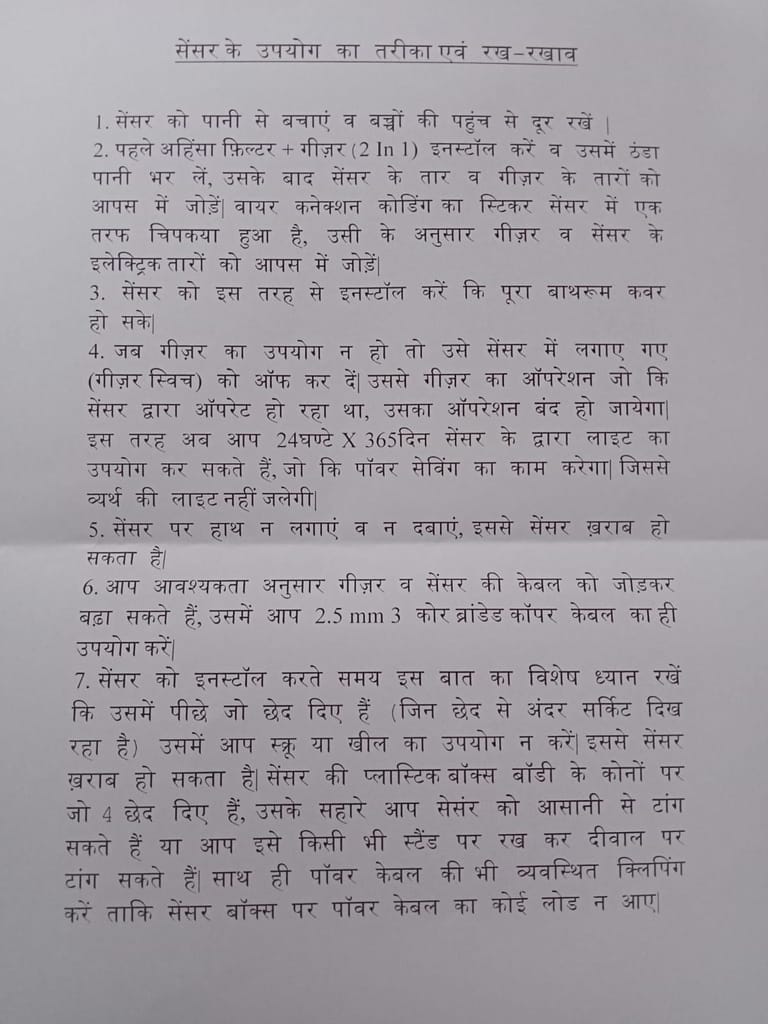 सेंसर के उपयोग का तरीका एवं रख-रखाव
1. सेंसर को पानी से बचाएं व बच्चों की पहुंच से दूर रखें |
2. पहले अहिंसा फ़िल्टर + गीज़र (2 In 1) इनस्टॉल करें व उसमें ठंडा
पानी भर लें, उसके बाद सेंसर के तार व गीज़र के तारों को
आपस में जोड़ें| वायर कनेक्शन कोडिंग का स्टिकर सेंसर में एक
तरफ चिपकया हुआ है, उसी के अनुसार गीज़र व सेंसर के
इलेक्ट्रिक तारों को आपस में जोड़ें|
3. सेंसर को इस तरह से इनस्टॉल करें कि पूरा बाथरूम कवर
हो सके|
4. जब गीज़र का उपयोग न हो तो उसे सेंसर में लगाए गए
(गीज़र स्विच) को ऑफ कर दें| उससे गीज़र का ऑपरेशन जो कि
सेंसर द्वारा ऑपरेट हो रहा था, उसका ऑपरेशन बंद हो जायेगा|
इस तरह अब आप 24घण्टे X 365दिन सेंसर के द्वारा लाइट का
उपयोग कर सकते हैं, जो कि पॉवर सेविंग का काम करेगा| जिससे
व्यर्थ की लाइट नहीं जलेगी|
5. सेंसर पर हाथ न लगाएं व न दबाएं, इससे सेंसर ख़राब हो
सकता है|
6. आप आवश्यकता अनुसार गीज़र व सेंसर की केबल को जोड़कर
बढ़ा सकते हैं, उसमें आप 2.5 mm 3 कोर ब्रांडेड कॉपर केबल का ही
उपयोग करें|
7. सेंसर को इनस्टॉल करते समय इस बात का विशेष ध्यान रखें
कि उसमें पीछे जो छेद दिए हैं (जिन छेद से अंदर सर्किट दिख
रहा है) उसमें आप स्क्रू या खील का उपयोग न करें| इससे सेंसर
ख़राब हो सकता है| सेंसर की प्लास्टिक बॉक्स बॉडी के कोनों पर
जो 4 छेद दिए हैं, उसके सहारे आप सेसंर को आसानी से टांग
सकते हैं या आप इसे किसी भी स्टैंड पर रख कर दीवाल पर
टांग सकते हैं| साथ ही पॉवर केबल की भी व्यवस्थित क्लिपिंग
करें ताकि सेंसर बॉक्स पर पॉवर केबल का कोई लोड न आए|